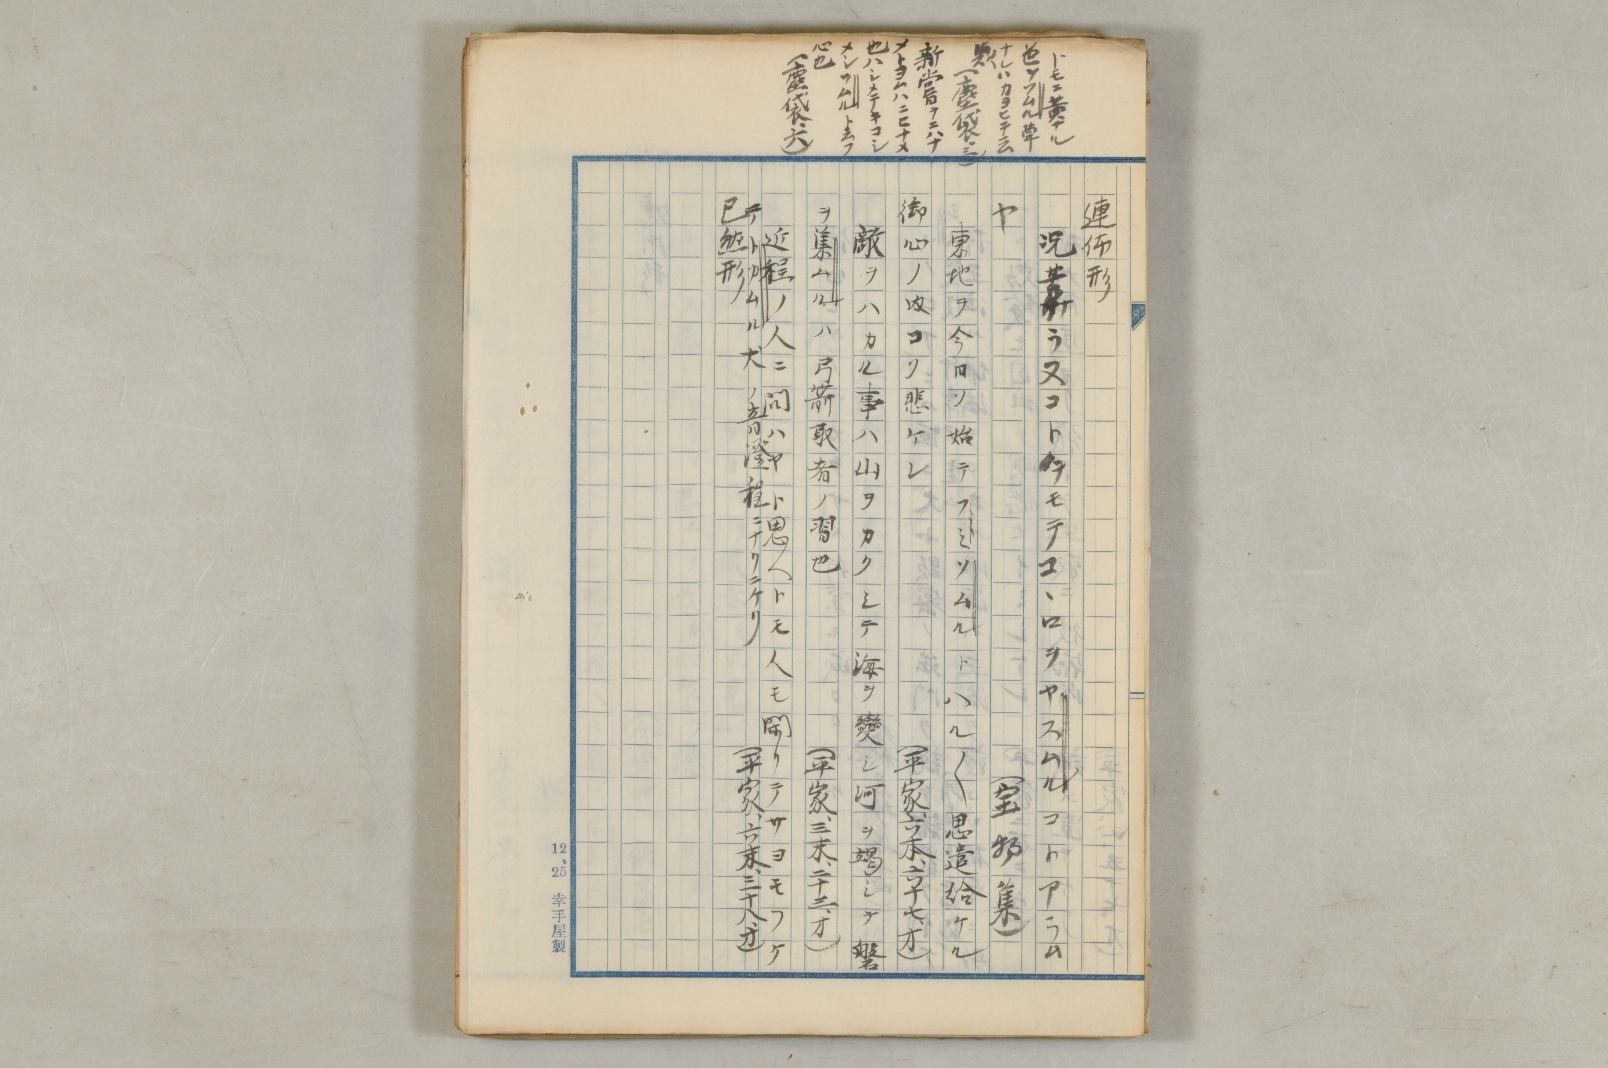 トモニ黄ナル
也ソムル草
ナレハカヨヒテ云
歟(塵袋、三)
新嘗ヲニハナ
メトヨムハニヒナメ
也ハシメテキコシ
メシソムルト云フ
心也
(塵袋、六)
連体形
況昔ヨリ又コトタモテコヽロヲヤスムルコトアラム
ヤ
(宝物集)
東地ヲ今日ソ始テフミソムルトハル〳〵思遣給ケル
御心ノ内コソ悲ケレ
(平家、六本、六十七、オ)
敵ヲハカル事ハ山ヲカクシテ海ヲ變シ河ヲ竭シテ盤
ヲ集ムルハ弓箭取者ノ習也
(平家、三末、二十三、オ)
近程ノ人ニ問ハヤト思ヘトモ人モ閑リテサヨモフケ
テトカムル犬ノ音澄程ニナリニケリ
(平家、六末、三十八、オ)
已然形
12、25 幸手屋製